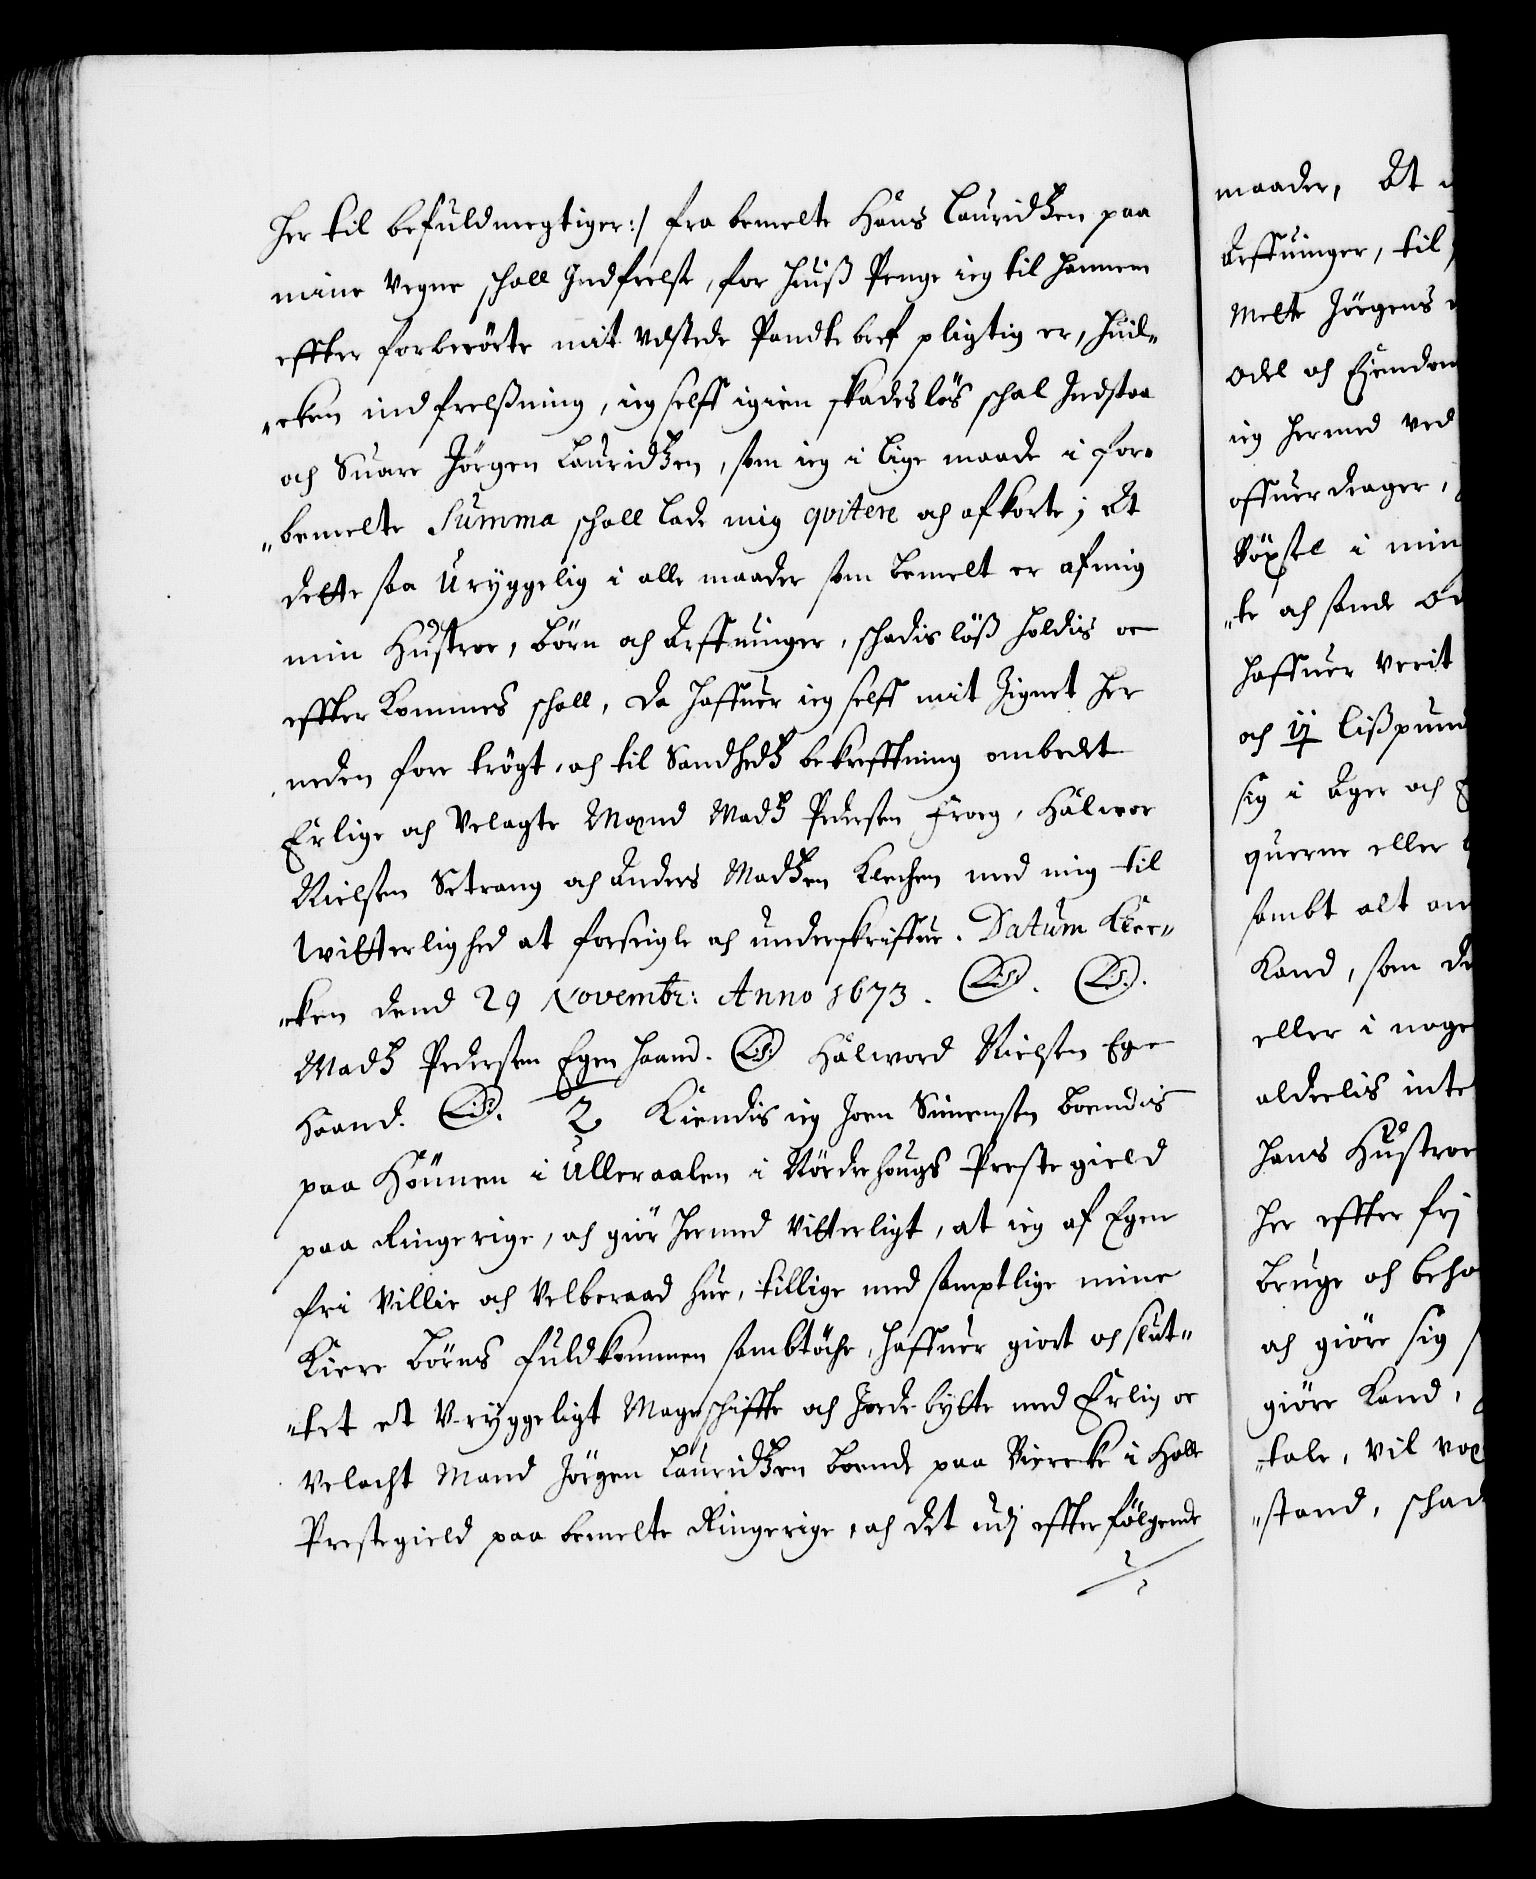 her til befuldmegtiger:/ fra bemelte Hans Lauridtzen paa
mine Vegne schall Indfrelse, for huiß Penge ieg til hannem
effter forberörte mit Udstede Pandtebref pligtig er, huil„
„cken indfrelßning, ieg selff igien skadeslös schal Indstaa
och Suare Jörgen Lauridtzen, som ieg i lige maade i for„
„bemelte Summa schall lade mig qvitere och afkorte; At
dette saa Uryggelig i alle maader som bemelt er af mig
min Hustroe, Börn och Arffuinger, schadislöß holdis oc
effterkommes schall, da haffuer ieg selff mit Zignet her
neden fore trögt, och til Sandhedtz bekrefftning ombedet
Erlige och Velagte Mænd Madtz Pedersen Froeg, Halwor
Nielsen Setrang och Anders Madtzen Klechen med mig til
Witterlighed at forseigle och underskriffue. Datum Klec„
„ken dend 29 Novembr: Anno 1673. L.S. L.S.
Madtz Pedersen Egen haand. L.S. Halword Nielsen Egen
Haand. L.S. 2. Kiendis ieg Joen Simensen boendis
paa Hönnen i Ulleraalen i Nördrehougs Prestegield
paa Ringerige, och giör hermed Vitterligt, at ieg af Egen
fri Villie och Velberaad hue, tillige med samptlige mine
Kiere Börns fuldkommen sambtöche, haffuer giort och slut„
„tet et Uryggeligt Mageschiffte och Jordebytte med Erlig oc
Velacht Mand Jörgen Lauridtzen boende paa Viercke i Hole
Prestegield paa bemelte Ringerige, och det udj effterfölgende
maader, At
Arffuinger, til
melte Jörgens
Odel och Eiendom
ieg hermed ved
offuerdrager,
Böxsel i min
„te och sande
haffuer Verit
och ij Lißpund
sig i Ager och
querne eller
sambt alt
Kand, som
eller i noge
alderlis inte
hans Hustroe
her effter frj
bruge och beho
och giöre sig
giöre Kand,
„tale, vil
„stand, schad